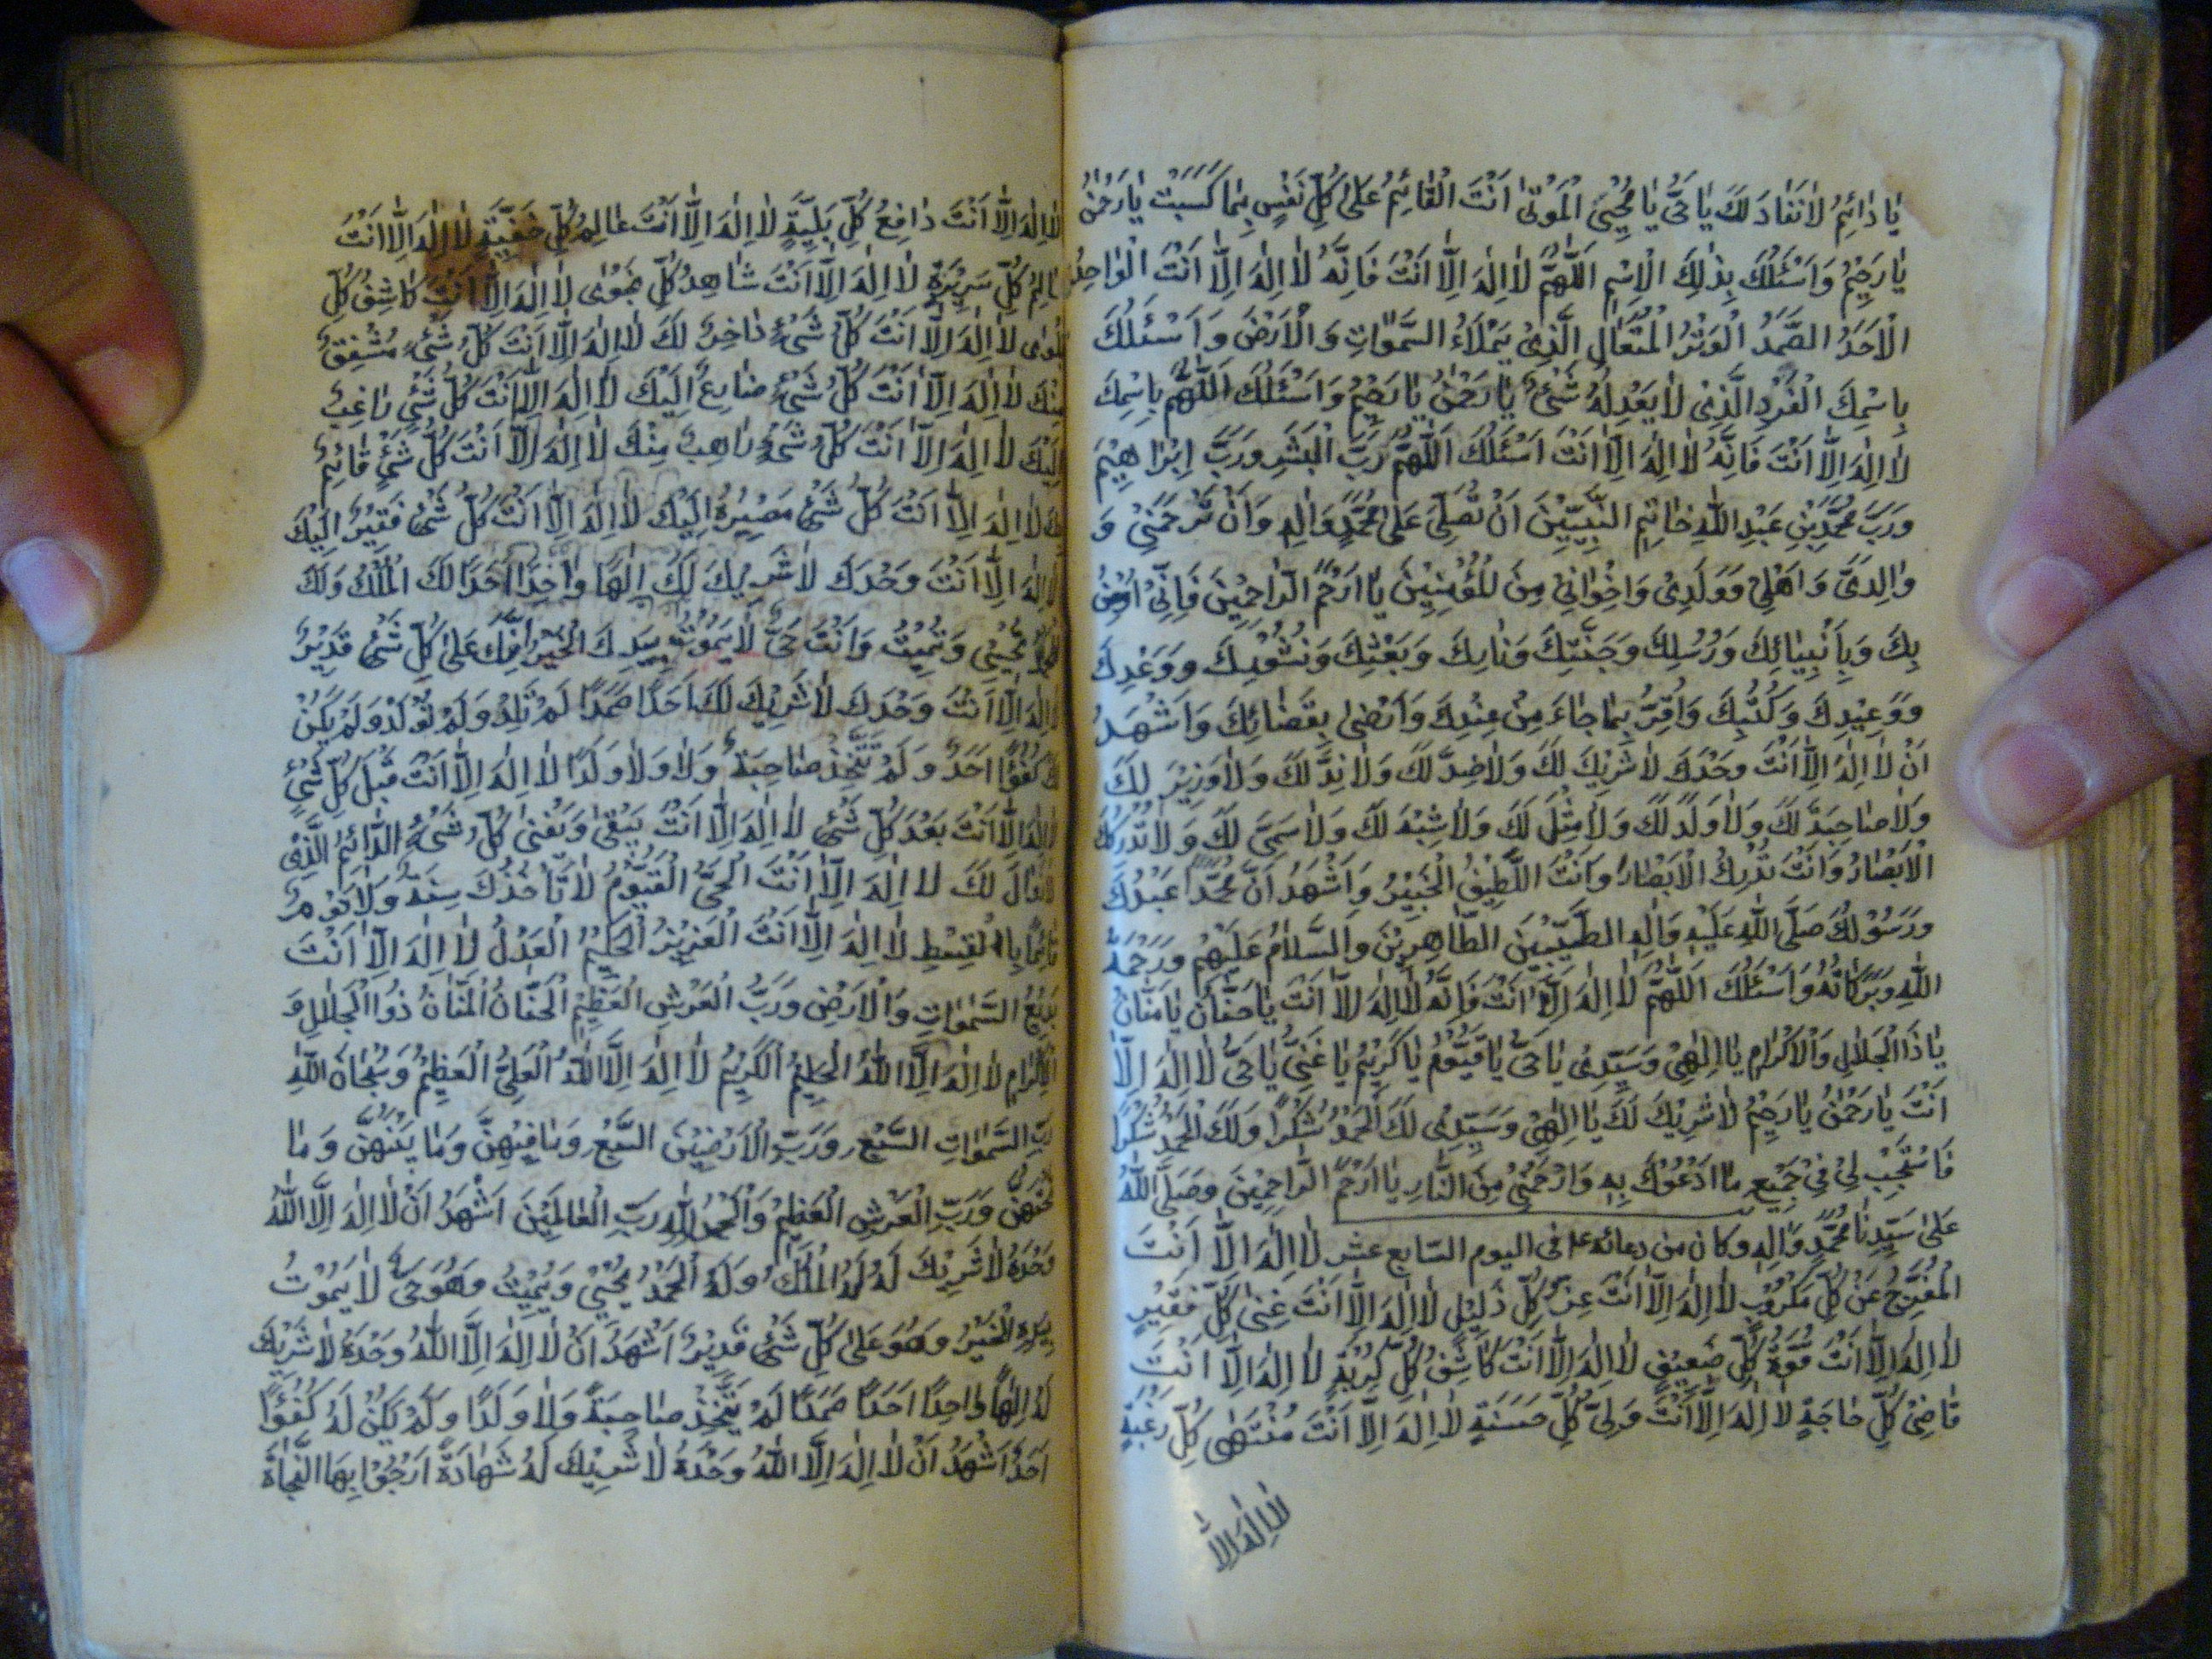 يَا دَائِمُ لَا نَفَادَ لَكَ يَا حَيُّ يَا مُحْيِيَ الْمَوْتَى أَنْتَ الْقَائِمُ عَلَى كُلِّ نَفْسٍ بِمَا كَسَبَتْ يَا رَحْمٰنُ
يَا رَحِيْمُ وَاَسْئَلُكَ بِذٰلِكَ الْاِسْمِ اَللّٰهُمَّ لَا اِلٰهَ اِلَّا اَنْتَ فَاِنَّهُ لَا اِلٰهَ اِلَّا اَنْتَ الْوَاحِدُ
الْاَحَدُ الصَّمَدُ الْوَتْرُ الْمُتَعَالِ الَّذِيْ يَمْلَاءُ السَّمٰوَاتِ وَالْاَرْضَ وَاَسْئَلُكَ
بِاسْمِكَ الْفَرْدِ الَّذِيْ لَا يَعْدِلُهُ شَيْءٌ يَا رَحْمٰنُ يَا رَحِيْمُ وَاَسْئَلُكَ اَللّٰهُمَّ بِاسْمِكَ
لَا اِلٰهَ اِلَّا اَنْتَ فَاِنَّهُ لَا اِلٰهَ اِلَّا اَنْتَ اَسْئَلُكَ اَللّٰهُمَّ رَبَّ الْبَشَرِ وَرَبَّ اِبْرَاهِيْمَ
وَرَبَّ مُحَمَّدِ بْنِ عَبْدِ اللّٰهِ خَاتِمِ النَّبِيِّيْنَ اَنْ تُصَلِّيَ عَلٰى مُحَمَّدٍ وَاٰلِهِ وَاَنْ تَرْحَمَنِيْ وَ
وَالِدَيَّ وَاَهْلِيْ وَوَلَدِيْ وَاِخْوَانِيْ مِنَ الْمُؤْمِنِيْنَ يَا اَرْحَمَ الرَّاحِمِيْنَ فَاِنِّيْ اُوْمِنُ
بِكَ وَبِاَنْبِيَائِكَ وَرُسُلِكَ وَجَنَّتِكَ وَنَارِكَ وَبَعْثِكَ وَنُشُوْرِكَ وَوَعْدِكَ
وَوَعِيْدِكَ وَكُتُبِكَ وَاُقِرُّ بِمَا جَاءَ مِنْ عِنْدِكَ وَاَرْضٰى بِقَضَائِكَ وَاَشْهَدُ
اَنْ لَا اِلٰهَ اِلَّا اَنْتَ وَحْدَكَ لَا شَرِيْكَ لَكَ وَلَا ضِدَّ لَكَ وَلَا نِدَّ لَكَ وَلَا وَزِيْرَ لَكَ
وَلَا صَاحِبَةَ لَكَ وَلَا وَلَدَ لَكَ وَلَا مِثْلَ لَكَ وَلَا شِبْهَ لَكَ وَلَا سَمِيَّ لَكَ وَلَا تُدْرِكُكَ
الْاَبْصَارُ وَاَنْتَ تُدْرِكُ الْاَبْصَارَ وَاَنْتَ اللَّطِيْفُ الْخَبِيْرُ وَاَشْهَدُ اَنَّ مُحَمَّدًا عَبْدُكَ
وَرَسُوْلُكَ صَلَّى اللّٰهِ عَلَيْهِ وَاٰلِهِ الطَّيِّبِيْنَ الطَّاهِرِيْنَ وَالسَّلَامُ عَلَيْهِمْ وَرَحْمَةُ
اللّٰهِ وَبَرَكَاتُهُ وَاَسْئَلُكَ اَللّٰهُمَّ لَا اِلٰهَ اِلَّا اَنْتَ فَاِنَّهُ لَا اِلٰهَ اِلَّا اَنْتَ يَا حَنَّانُ يَا مَنَّانُ
يَا ذَا الْجَلَالِ وَالْاِكْرَامِ يَا اِلٰهِيْ وَسَيِّدِيْ يَا حَيُّ يَا قَيُّوْمُ يَا كَرِيْمُ يَا غَنِيُّ يَا حَيُّ لَا اِلٰهَ اِلَّا
اَنْتَ يَا رَحْمٰنُ يَا رَحِيْمُ لَا شَرِيْكَ لَكَ يَا اِلٰهِيْ وَسَيِّدِيْ لَكَ الْحَمْدُ شُكْرًا وَلَكَ الْحَمْدُ شُكْرًا
فَاسْتَجِبْ لِيْ فِيْ جَمِيْعِ مَا اَدْعُوْكَ بِهِ وَارْحَمْنِيْ مِنَ النَّارِ يَا اَرْحَمَ الرَّاحِمِيْنَ وَصَلَّى اللّٰهُ
عَلٰى سَيِّدِنَا مُحَمَّدٍ وَاٰلِهِ وكان من دعائه ع فى اليوم السابع عشر لَا اِلٰهَ اِلَّا اَنْتَ
الْمُفَرِّجُ عَنْ كُلِّ مَكْرُوْبٍ لَا اِلٰهَ اِلَّا اَنْتَ عِزُّ كُلِّ ذَلِيْلٍ لَا اِلٰهَ اِلَّا اَنْتَ غِنٰى كُلِّ فَقِيْرٍ
لَا اِلٰهَ اِلَّا اَنْتَ قُوَّةُ كُلِّ ضَعِيْفٍ لَا اِلٰهَ اِلَّا اَنْتَ كَاشِفُ كُلِّ كُرْبَةٍ لَا اِلٰهَ اِلَّا اَنْتَ
قَاضِيْ كُلِّ حَاجَةٍ لَا اِلٰهَ اِلَّا اَنْتَ وَلِيُّ كُلِّ حَسَنَةٍ لَا اِلٰهَ اِلَّا اَنْتَ مُنْتَهٰى كُلِّ رَغْبَةٍ
لَا اِلٰهَ اِلَّا
لَا اِلٰهَ اِلَّا اَنْتَ دَافِعُ كُلِّ بَلِيَّةٍ لَا اِلٰهَ اِلَّا اَنْتَ عَالِمُ كُلِّ خَفِيَّةٍ لَا اِلٰهَ اِلَّا اَنْتَ
عَالِمُ كُلِّ سَرِيْرَةٍ لَا اِلٰهَ اِلَّا اَنْتَ شَاهِدُ كُلِّ نَجْوٰى لَا اِلٰهَ اِلَّا اَنْتَ كَاشِفُ كُلِّ
بَلْوٰى لَا اِلٰهَ اِلَّا اَنْتَ كُلُّ شَيْءٍ دَاخِرٌ لَكَ لَا اِلٰهَ اِلَّا اَنْتَ كُلُّ شَيْءٍ مُشْفِقٌ
مِنْكَ لَا اِلٰهَ اِلَّا اَنْتَ كُلُّ شَيْءٍ ضَارِعٌ اِلَيْكَ لَا اِلٰهَ اِلَّا اَنْتَ كُلُّ شَيْءٍ رَاغِبٌ
اِلَيْكَ لَا اِلٰهَ اِلَّا اَنْتَ كُلُّ شَيْءٍ رَاهِبٌ مِنْكَ لَا اِلٰهَ اِلَّا اَنْتَ كُلُّ شَيْءٍ قَائِمٌ
بِكَ لَا اِلٰهَ اِلَّا اَنْتَ كُلُّ شَيْءٍ مَصِيْرُهُ اِلَيْكَ لَا اِلٰهَ اِلَّا اَنْتَ كُلُّ شَيْءٍ فَقِيْرٌ اِلَيْكَ
لَا اِلٰهَ اِلَّا اَنْتَ وَحْدَكَ لَا شَرِيْكَ لَكَ اِلٰهًا وَاحِدًا اَحَدًا لَكَ الْمُلْكُ وَلَكَ
الْحَمْدُ تُحْيِيْ وَتُمِيْتُ وَاَنْتَ حَيٌّ لَا يَمُوْتُ بِيَدِكَ الْخَيْرُ اِنَّكَ عَلٰى كُلِّ شَيْءٍ قَدِيْرٌ
لَا اِلٰهَ اِلَّا اَنْتَ وَحْدَكَ لَا شَرِيْكَ لَكَ اَحَدًا صَمَدًا لَمْ تَلِدْ وَلَمْ تُوْلَدْ وَلَمْ يَكُنْ
لَكَ كُفُوًا اَحَدٌ وَلَمْ تَتَّخِذْ صَاحِبَةً وَلَا وَلَا وَلَدًا لَا اِلٰهَ اِلَّا اَنْتَ قَبْلَ كُلِّ شَيْءٍ
لَا اِلٰهَ اِلَّا اَنْتَ بَعْدَ كُلِّ شَيْءٍ لَا اِلٰهَ اِلَّا اَنْتَ تَبْقٰى وَيَفْنٰى كُلُّ شَيْءٍ الدَّائِمُ الَّذِيْ
لَا زَوَالَ لَكَ لَا اِلٰهَ اِلَّا اَنْتَ الْحَيُّ الْقَيُّوْمُ لَا تَأْخُذُكَ سِنَةٌ وَلَا نَوْمٌ
قَائِمًا بِالْقِسْطِ لَا اِلٰهَ اِلَّا اَنْتَ الْعَزِيْزُ الْحَكِيْمُ الْعَدْلُ لَا اِلٰهَ اِلَّا اَنْتَ
بَدِيْعُ السَّمٰوَاتِ وَالْاَرْضِ وَرَبُّ الْعَرْشِ الْعَظِيْمِ الْحَنَّانُ الْمَنَّانُ ذُوا الْجَلَالِ وَ
الْاِكْرَامِ لَا اِلٰهَ اِلَّا اللّٰهُ الْحَلِيْمُ الْكَرِيْمُ لَا اِلٰهَ اِلَّا اللّٰهُ الْعَلِيُّ الْعَظِيْمُ وَسُبْحَانَ اللّٰهِ
رَبِّ السَّمٰوَاتِ السَّبْعِ وَرَبِّ الْاَرَضِيْنَ السَّبْعِ وَمَا فِيْهِنَّ وَمَا بَيْنَهُنَّ وَمَا
تَحْتَهُنَّ وَرَبِّ الْعَرْشِ الْعَظِيْمِ وَالْحَمْدُ لِلّٰهِ رَبِّ الْعَالَمِيْنَ اَشْهَدُ اَنْ لَا اِلٰهَ اِلَّا اللّٰهُ
وَحْدَهُ لَا شَرِيْكَ لَهُ لَهُ الْمُلْكُ وَلَهُ الْحَمْدُ يُحْيِيْ وَيُمِيْتُ وَهُوَ حَيٌّ لَا يَمُوْتُ
بِيَدِهِ الْخَيْرُ وَهُوَ عَلٰى كُلِّ شَيْءٍ قَدِيْرٌ اَشْهَدُ اَنْ لَا اِلٰهَ اِلَّا اللّٰهُ وَحْدَهُ لَا شَرِيْكَ
لَهُ اِلٰهًا وَاحِدًا اَحَدًا صَمَدًا لَمْ يَتَّخِذْ صَاحِبَةً وَلَا وَلَدًا وَلَمْ يَكُنْ لَهُ كُفُوًا
اَحَدٌ اَشْهَدُ اَنْ لَا اِلٰهَ اِلَّا اللّٰهُ وَحْدَهُ لَا شَرِيْكَ لَهُ شَهَادَةً اَرْجُوْا بِهَا النَّجَاةَ